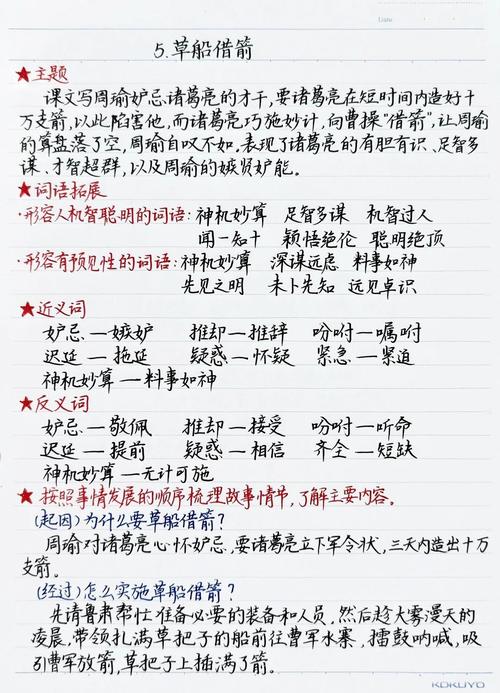 Date
5.草船借箭
★主题
课文写周瑜妒忌诸葛亮的才干,要诸葛亮在短时间内造好十
万支箭,以此陷害他,而诸葛亮巧施妙计,向曹操“借箭”,让周瑜
的算盘落了空,周瑜自叹不如,表现了诸葛亮的有胆有识、足智多
谋、才智超群,以及周瑜的嫉贤妒能。
★词语拓展
·形容人机智聪明的词语:神机妙算 足智多谋 机智过人
闻一知十 颖悟绝伦 聪明绝顶
·形容有预见性的词语:神机妙算 深谋远虑 料事如神
先见之明 未卜先知 远见卓识
★近义词
妒忌—嫉妒 推却—推辞 吩咐—嘱咐
迟延—拖延 疑惑—怀疑 紧急—紧迫
神机妙算—料事如神
★反义词
妒忌—敬佩 推却—接受 吩咐—听命
迟延—提前 疑惑—相信 齐全—短缺
神机妙算—无计可施
★按照事情发展的顺序梳理故事情节,了解主要内容。
(起因)为什么要草船借箭?
周瑜对诸葛亮心怀妒忌,要诸葛亮立下军令状,三天内造出十万
支箭。
(经过)怎么实施草船借箭?
先请鲁肃帮忙准备必要的装备和人员,然后趁大雾漫天的
凌晨,带领扎满草把子的船前往曹军水寨,擂鼓呐喊,吸
引曹军放箭,草把子上插满了箭。
KOKUYO